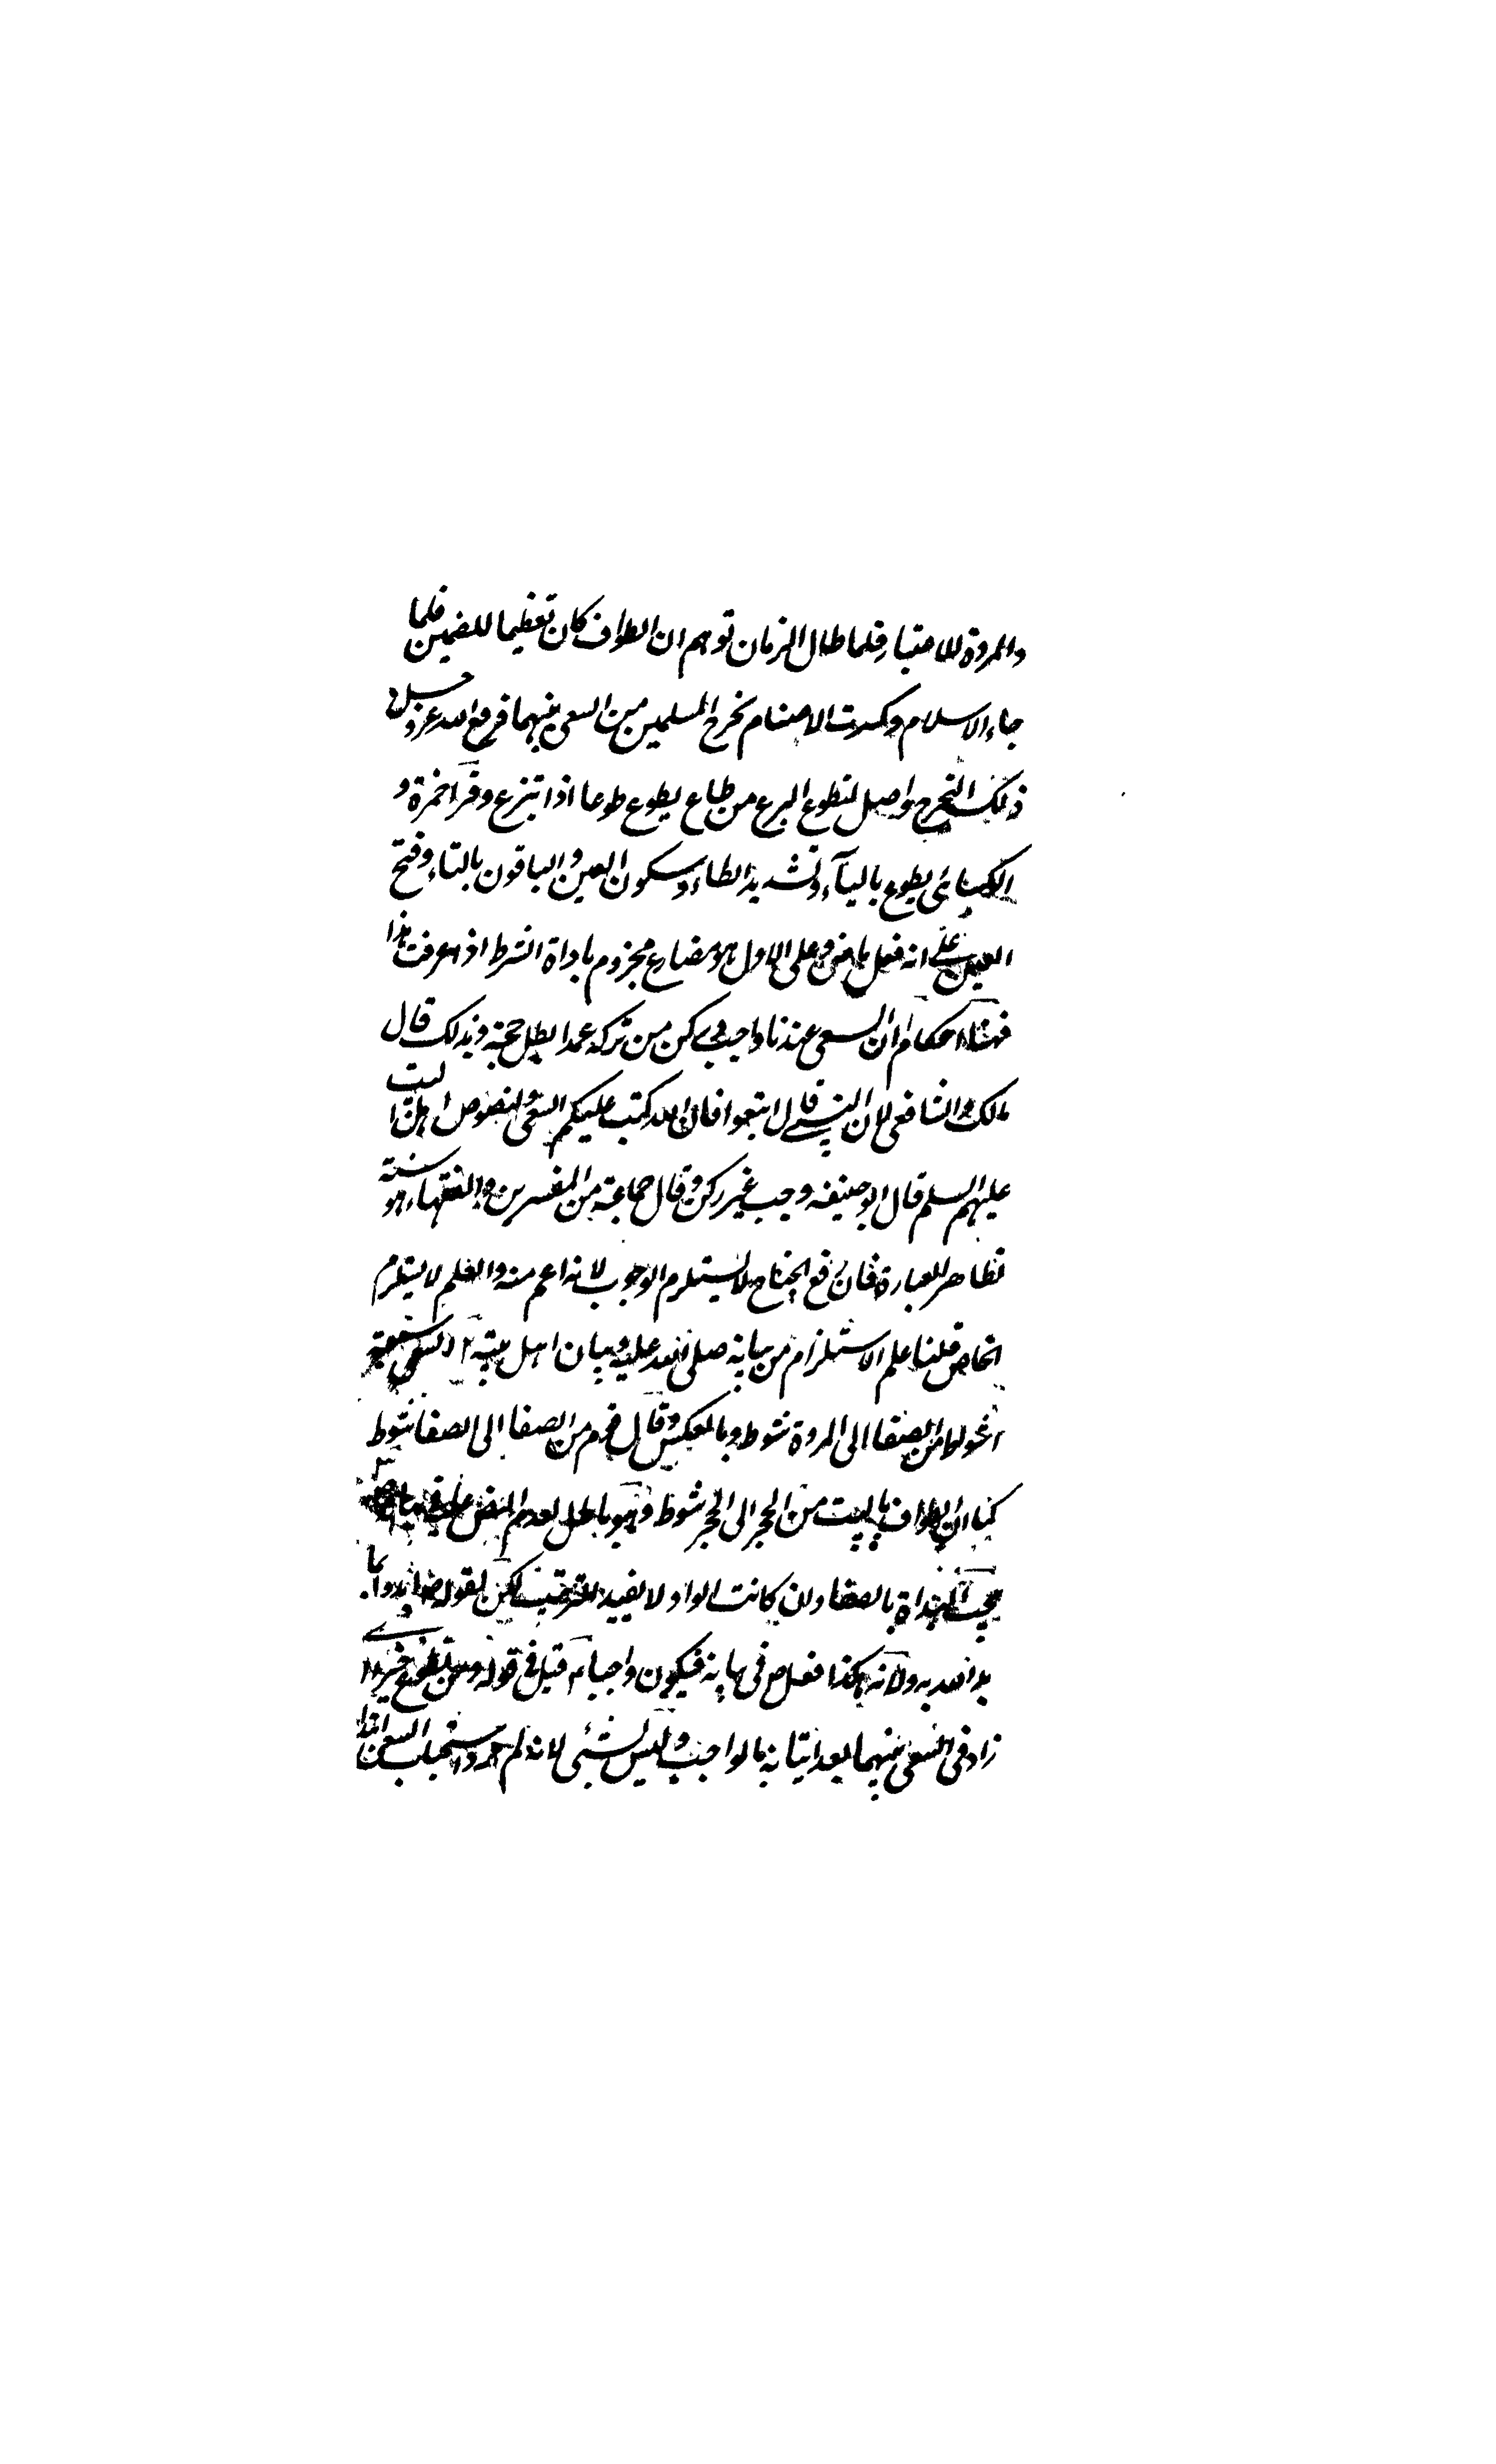 والمروة للاعتبار فلما طال الزمان توهم ان الطواف كان تعظيما للصنمين فلما
جاء الاسلام وكسرت الاصنام تحرج المسلمين من السعى بينهما فرفع الله عز وجل
ذلك التحرج واصل لتطوع التبرع من طاع يطوع طوعا اذا تبرع وقرا حمزة و
الكسائى يطوع باليآء وتشديد الطاء وسكون العين والباقون بالتاء وفتح
العين على انه فعل ماض وعلى الاول هو مضارع مجزوم باداة الشرط اذا عرفت هذا
فهنا احكام ا ان السعى عندنا واجب ركن من تركه عمدا بطل حجة وبذلك قال
مالك والشافعى لان النبى قال اسعوا فان الله كتب عليكم السعى ولنصوص اهل البيت
عليهم السلم قال ابو حنيفه وجب غير ركن وقال جماعة من المفسرين والفقهاء هو سنة
لظاهر العبارة فان رفع الجناح لا يستلزم الوجوب لانه اعم منه والعام لا يستلزم
الخاص قلنا علم الاستلزام من بيانه صلى الله عليه وبيان اهل بيته ٢ السعى سبعة
اشواط من الصفا الى المروة شوط وبالعكس وقال قوم من الصفا الى الصفا شوط
كما ان الطواف بالبيت من الحجر الى الحجر شوط وهو باطل لعدم النص
يجب البداة بالصفا وان كانت الواو لا يفيد الترتيب لكن لقوله ابدوا بما
بدا الله به ولانه هكذا فعل فى بيانه فيكون واجبا ٤ قيل فى قوله ومن تطوع خيرا اى
زاد فى السعى بينهما بعد اتيانه بالواجب وليس بشئى لانه لم استحباب السعى